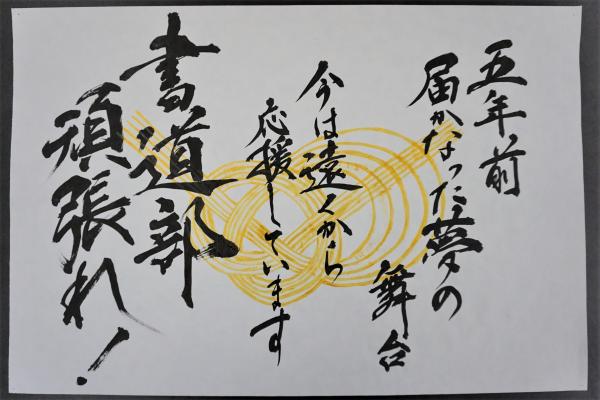 五年前
届かなった夢の
舞台
今は遠くから
応援しています
書道部
頑張れ!